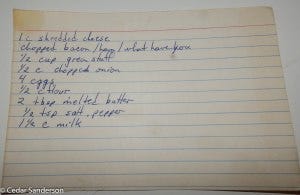 1 c shredded cheese
chopped bacon/ham/what have you
1/2 cup green stuff
1/2 c chopped onion
4 eggs
1/2 c flour
2 tbsp melted butter
1/2 tsp salt, pepper
1 1/2 c milk
© Cedar Sanderson